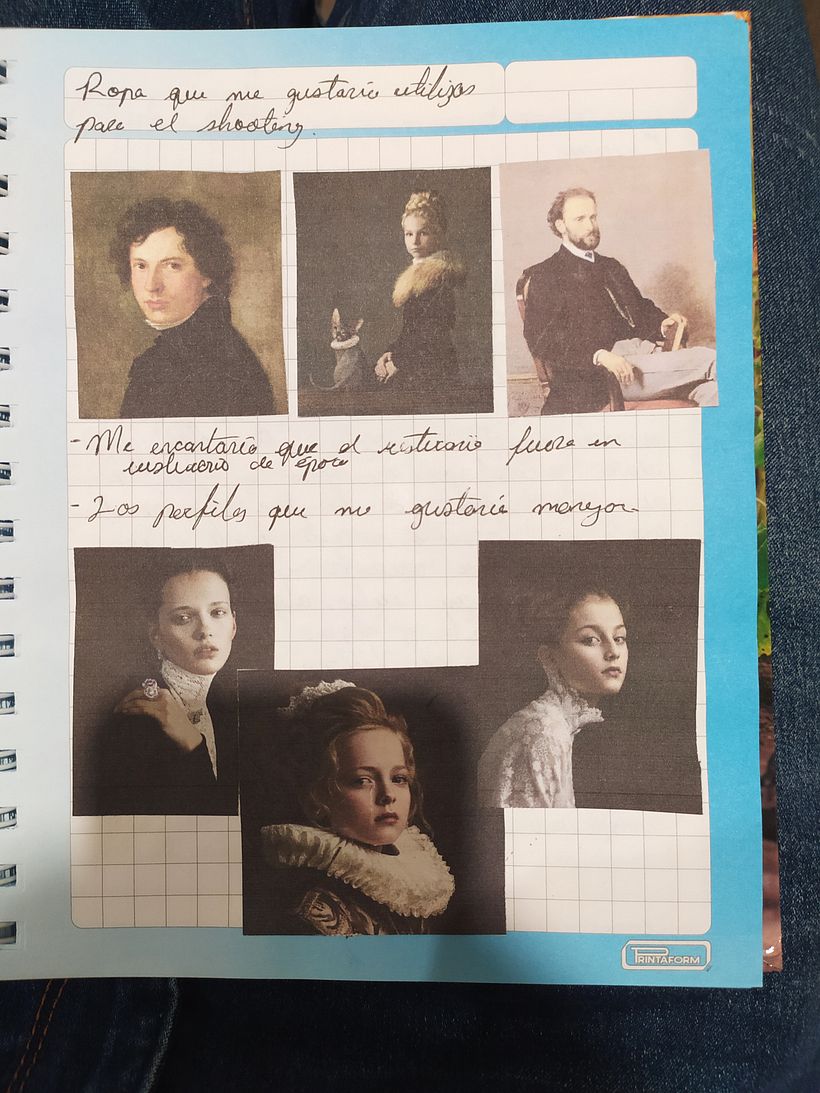 Ropa que me gustaria utilizar
para el shooting.
- Me encantaria que el vestuario fuera en
de época
- Los perfiles que me gustaria manejar
PRINTAFORM